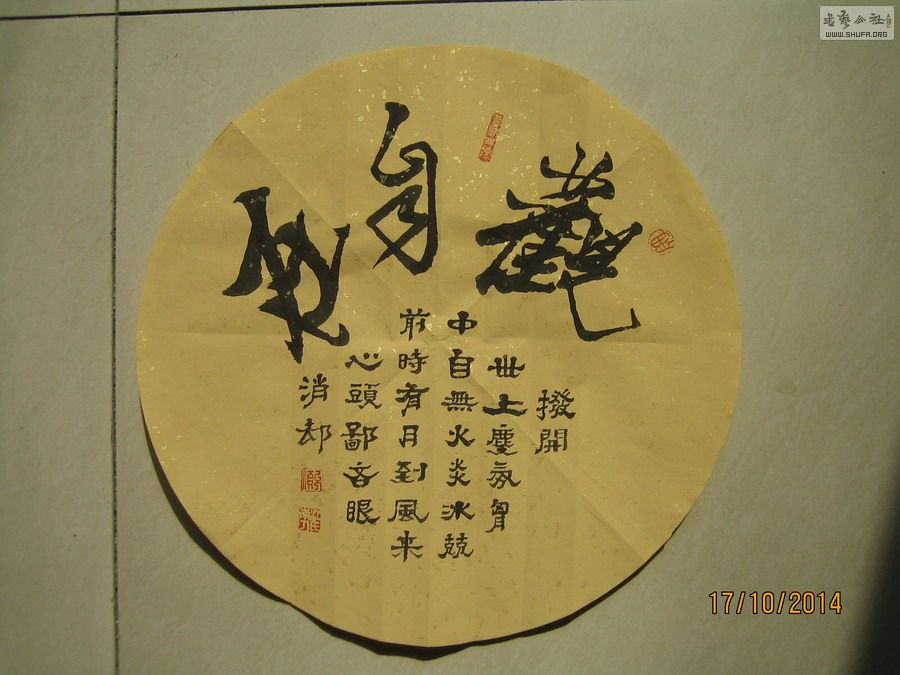 觀
撥開
世上塵氛胷
中自無火炎冰兢
消却
心頭鄙吝眼
前時有月到風来
17/10/2014
WWW.SHUFA.ORG